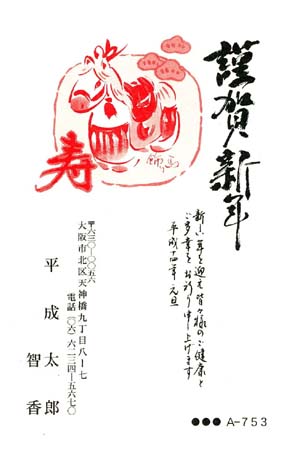 謹賀新年
新しい年を迎え皆々様のご健康と
ご多幸をお祈り申し上げます
平成十四年 元旦
寿
〒六三〇-〇〇五六
大阪市北区天神橋九丁目八-七
電話(〇六)六二三四-五六七〇
平成太郎
智香
●●● A-753